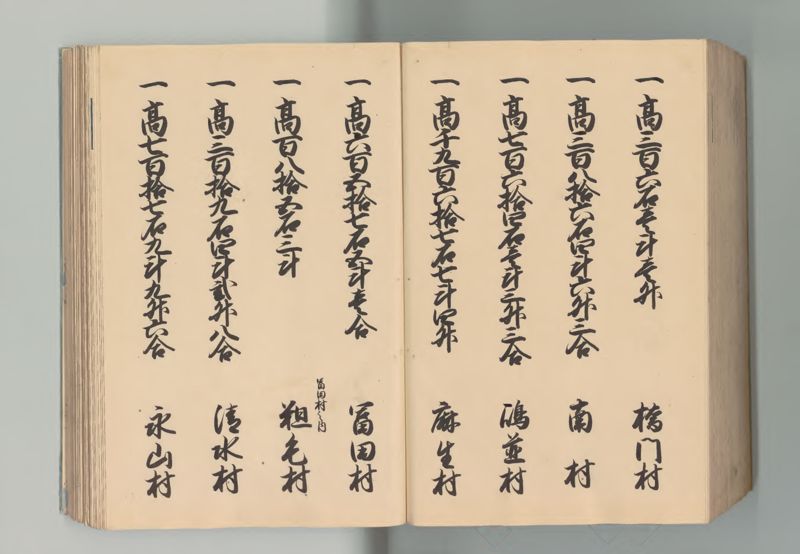 一高三百六石壱斗壱升 橋門村
一高三百八拾六石四斗六升三合 南村
一高七百六拾四石壱斗三升三合 鴻並村
一高千九百六拾七石七斗四升 麻生村
一高六百五拾七石五斗壱合 冨田村
冨田村之内
一高百八拾五石三斗 粗毛村
一高三百拾九石四斗弐升八合 清水村
一高七百拾七石九斗九升六合 永山村